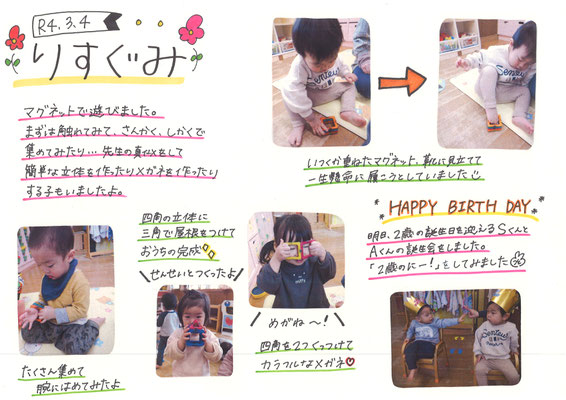 R4.3.4
りすぐみ
マグネットで遊びました。
まずは触れてみて、さんかく、しかくで
集めてみたり…先生の真似をして
簡単な立体を作ったりメガネを作ったり
する子もいましたよ。
いくつか重ねたマグネット、靴に見立てて
一生懸命に履こうとしていました
四角の立体に
三角で屋根をつけて
おうちの完成
せんせいとつくったよ
たくさん集めて
腕にはめてみたよ
めがね〜!
四角を2つくっつけて
カラフルなメガネ
HAPPY BIRTH DAY
明日、2歳の誕生日を迎えるSくんと
Aくんの誕生会をしました。
「2歳のにー!」をしてみました